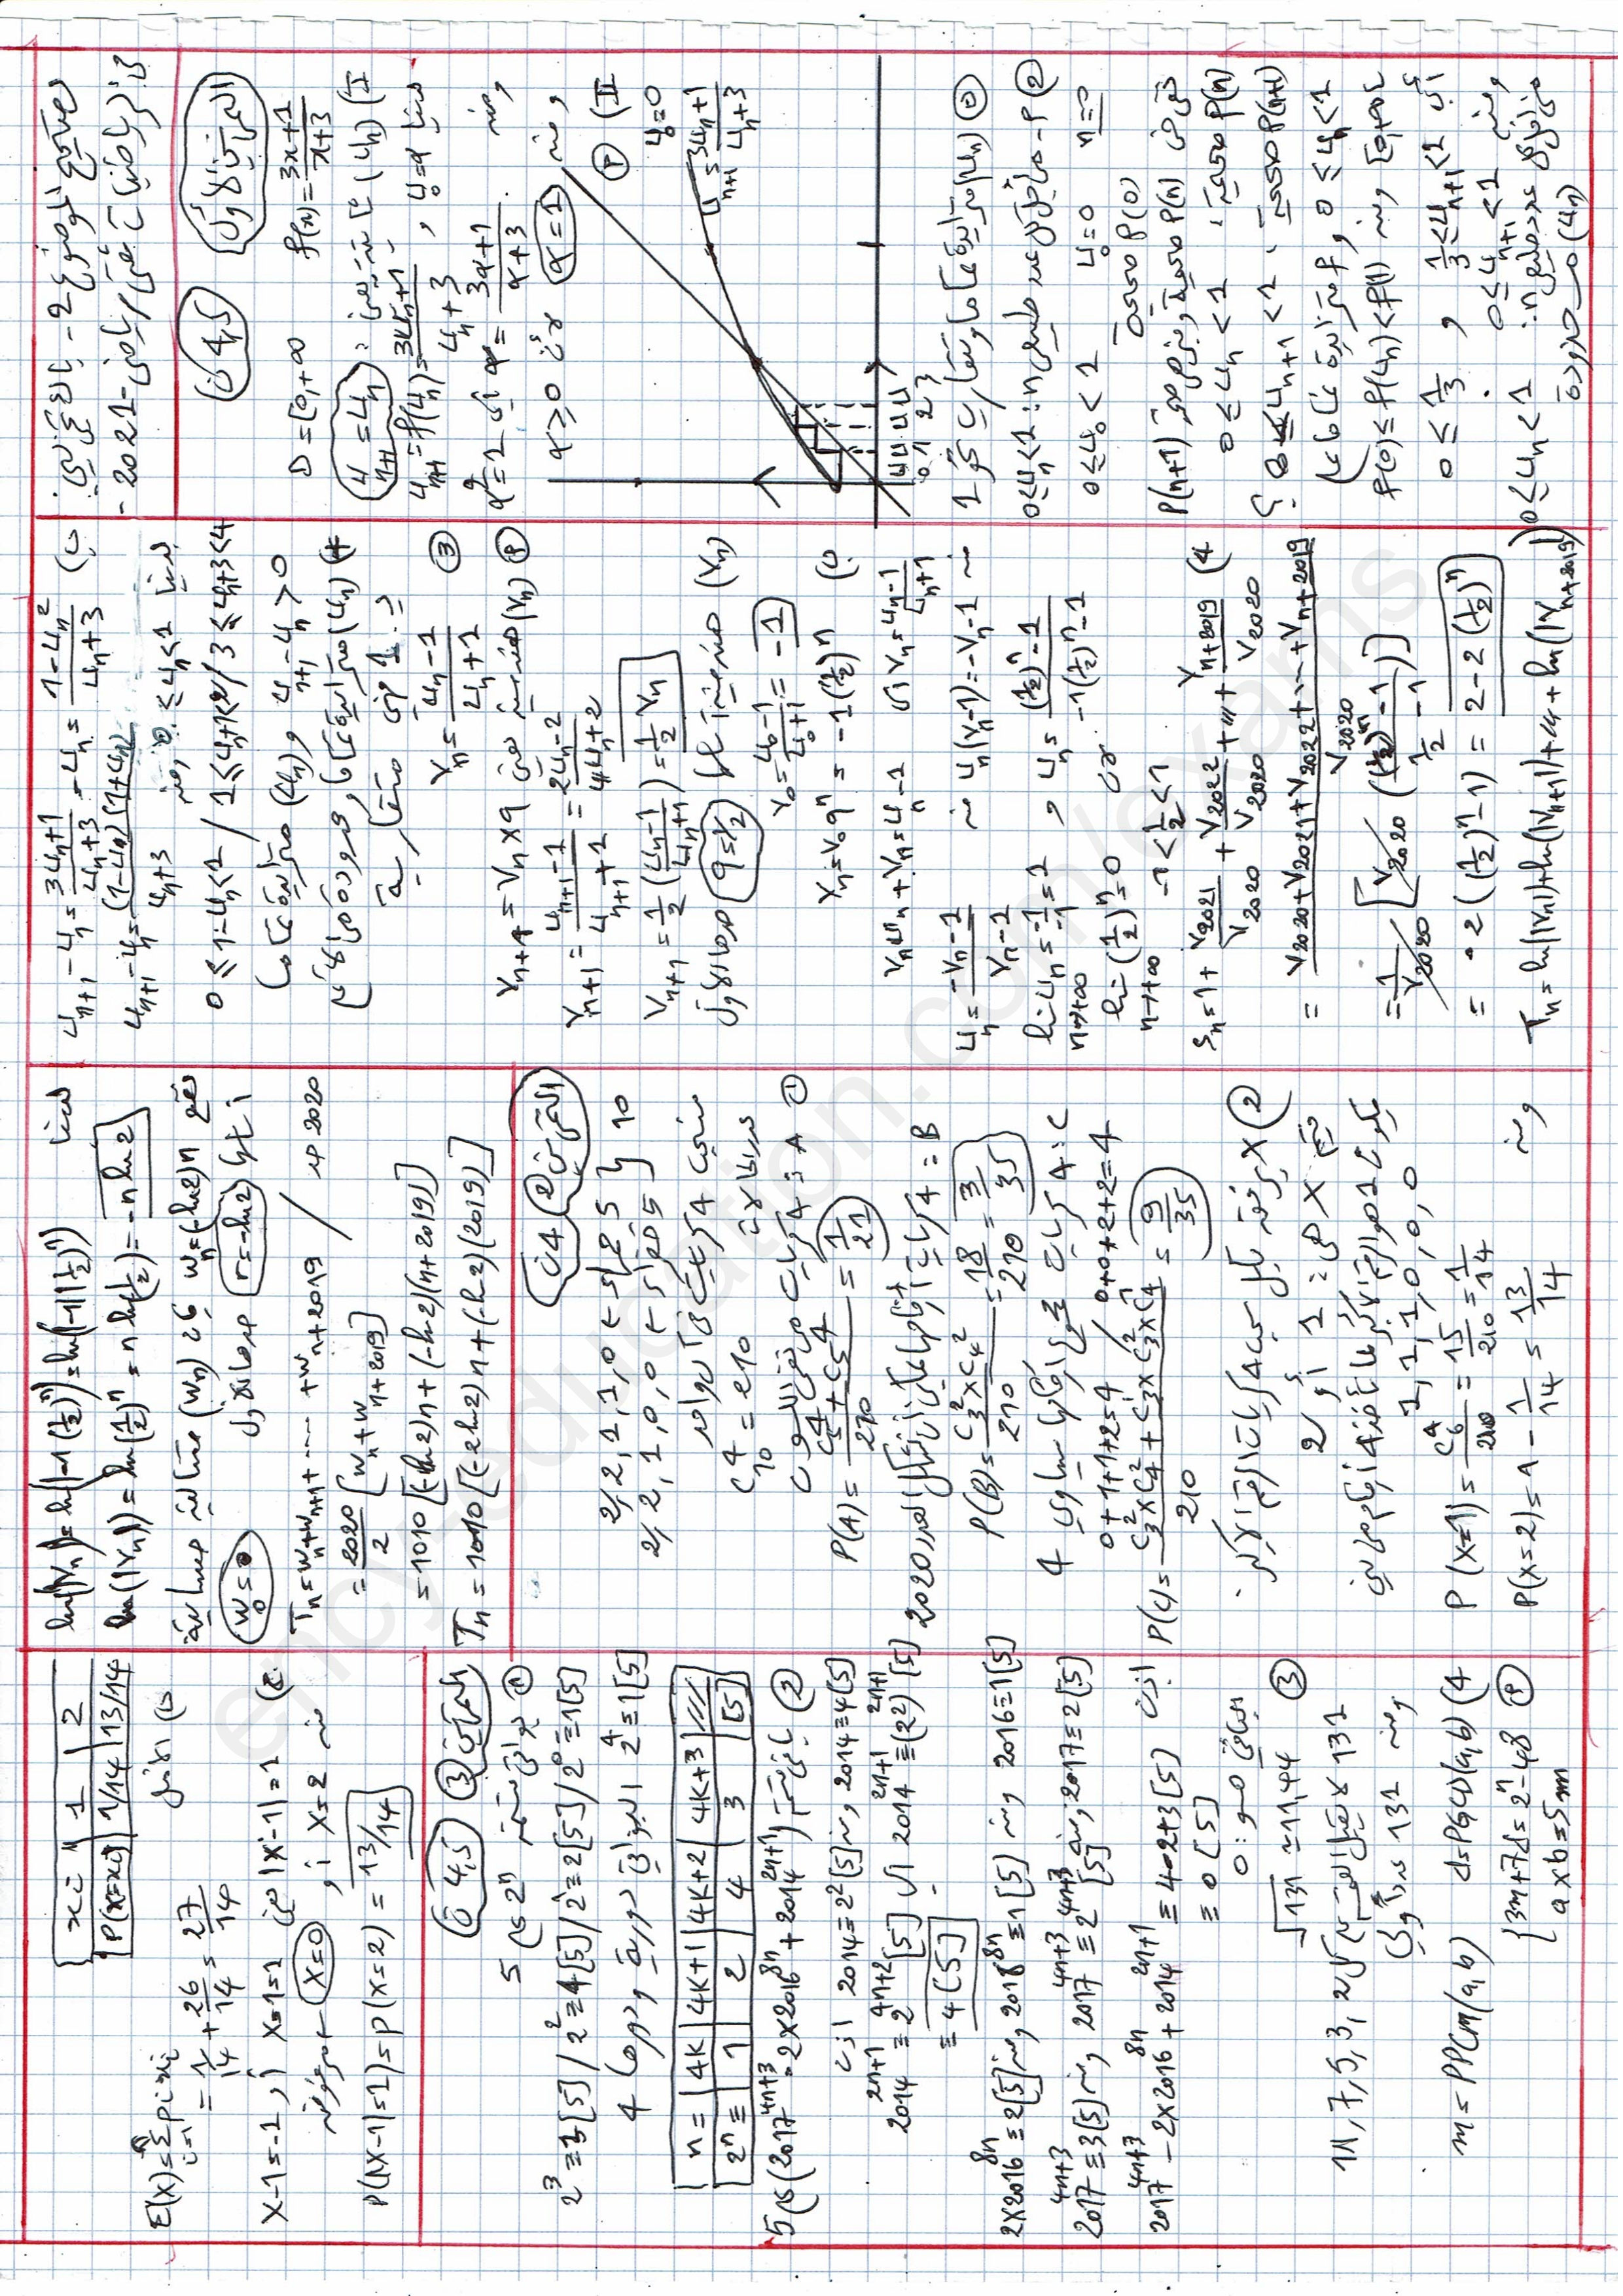 تصحيح الموضوع - 2 - بكالوريا
- 2021 - رياضي / تقني رياضي
التمرين الأول
4,5 ن
D = [0, +∞ f(x) = 3x+1 / x+3
I) (un) ثابتة يعني: un+1 = un
un+1 = f(un) = 3un+1 / un+3 , u0 = α لدينا
ومنه α = 3α+1 / α+3 أي α² = 1
ومنه α = 1 لأن α ≥ 0
II) 1
u0 = 0
un+1 = 3un+1 / un+3
u0 u1 u2 u3
(un) متزايدة تماما وتتقارب نحو 1
2 P - من أجل كل عدد طبيعي n: 0≤un<1
n=0 u0=0 0≤u0<1
P(0) صحيحة
P(n) صحيحة P(n+1)
0≤un<1
0≤un+1<1
0≤un<1 و f متزايدة تماما
f(0)≤f(un)<f(1) ومنه
أي 1/3≤un+1<1 و 0≤1/3
ومنه 0≤un+1<1
من أجل كل عدد طبيعي n: 0≤un<1
(un) محدودة
ب) un+1 - un = 3un+1 / un+3 - un = 1-un² / un+3
un+1 - un = (1-un)(1+un) / un+3
لدينا 0≤un<1 ومنه
0≤1-un<1 / 1≤un+1<2 / 3≤un+3<4
un+1 - un > 0 و (un) متزايدة تماما
(un) متزايدة تماما ومحدودة من الأعلى
3 vn = un-1 / un+1
P (vn) هندسية يعني vn+1 = vn × q
vn+1 = un+1 -1 / un+1 +1 = 2un-2 / 4un+2
vn+1 = 1/2 (un-1 / un+1) = 1/2 vn
(vn) هندسية أساسها q=1/2 وحدها الأول
v0 = u0-1 / u0+1 = -1
ب) vn = v0 qⁿ = -1(1/2)ⁿ
vn = un-1 / un+1 أي vn un + vn = un - 1
ومنه un(vn-1) = -vn-1
un = -vn-1 / vn-1 و un = (1/2)ⁿ-1 / -1(1/2)ⁿ-1
lim un = -1/-1 = 1 n→+∞
lim (1/2)ⁿ = 0 لأن -1<1/2<1 n→+∞
4) Sn = 1 + v2021/v2020 + v2022/v2020 + ... + vn+2019/v2020
= v2020+v2021+v2022+...+vn+2019 / v2020
= 1/v2020 [v2020 ((1/2)ⁿ-1 / 1/2 -1)]
= -2((1/2)ⁿ-1) = 2-2(1/2)ⁿ
Tn = ln(|vn|)+ln(|vn+1|)+...+ln(|vn+2019|)
لدينا ln(|vn|) = ln(|-1(1/2)ⁿ|) = ln(|-1|(1/2)ⁿ)
ln(|vn|) = ln(1/2)ⁿ = n ln(1/2) = -n ln 2
نضع wn=(-ln2)n (wn) متتالية حسابية
أساسها r=-ln2 وحدها الأول w0=0
Tn = wn+wn+1+...+wn+2019 / 2020
= 2020/2 [wn+wn+2019]
= 1010[(-ln2)n+(-ln2)(n+2019)]
Tn = 1010[(-2ln2)n+(-ln2)(2019)]
التمرين 2
4 ن
2, 2, 1, 1, 0 ← 5
2, 2, 1, 0, 0 ← 5
10
C⁴10 = 210
1 A: 4 كريات من نفس اللون
P(A) = C⁴5 + C⁴5 / 210 = 1/21
B: 4 كريات 2020 العدد
P(B) = C²3×C²4 / 210 = 18/210 = 3/35
C: 4 كريات مجموع أرقامها يساوي 4
0+1+1+2=4 / 0+0+2+2=4
P(C) = C²3×C²4 + C¹3×C²3×C¹4 / 210 = 9/35
2 X يرفق بكل سحب 4 كريات الرقم الأكبر
قيم X هي: 1 أو 2
1,1,1,0,0,0
P(X=1) = C⁴6/210 = 15/210 = 1/14
P(X=2) = 1 - 1/14 = 13/14
ومنه
xi | 1 | 2
P(X=xi) | 1/14 | 13/14
E(X) = Σ pi xi
= 1/14 + 26/14 = 27/14
|X-1|=1 يعني X-1=1 أو X-1=-1
ومنه X=2 أو X=0 مرفوض
P(|X-1|=1) = P(X=2) = 13/14
التمرين 3
4,5 ن
1 بواقي قسمة 2ⁿ على 5
2⁰≡1[5] / 2¹≡2[5] / 2²≡4[5] / 2³≡3[5]
2⁴≡1[5]
n= | 4K | 4K+1 | 4K+2 | 4K+3 |
2ⁿ≡ | 1 | 2 | 4 | 3 | [5]
2 باقي قسمة (2017⁴ⁿ⁺³ - 2×2016⁸ⁿ + 2014²ⁿ⁺¹) على 5
2014≡4[5] ومنه 2014≡2²[5] إذن
2014²ⁿ⁺¹≡(2²)²ⁿ⁺¹[5] أي 2014²ⁿ⁺¹≡2⁴ⁿ⁺²[5]
≡4[5]
2016≡1[5] ومنه 2016⁸ⁿ≡1[5] ومنه 2×2016⁸ⁿ≡2[5]
2017≡2[5] ومنه 2017⁴ⁿ⁺³≡2⁴ⁿ⁺³[5] ومنه 2017⁴ⁿ⁺³≡3[5]
إذن 2017⁴ⁿ⁺³ - 2×2016⁸ⁿ + 2014²ⁿ⁺¹ ≡ 4-2+3[5]
≡ 0[5]
الباقي هو: 0
3 √131 ≃ 11,44
131 لا يقبل القسمة على 2, 3, 5, 7, 11
ومنه 131 عدد أولي
4) d=PGCD(a,b) m=PPCM(a,b)
P {3m+7d=2ⁿ-48
a×b=5m
ency-education.com/exams